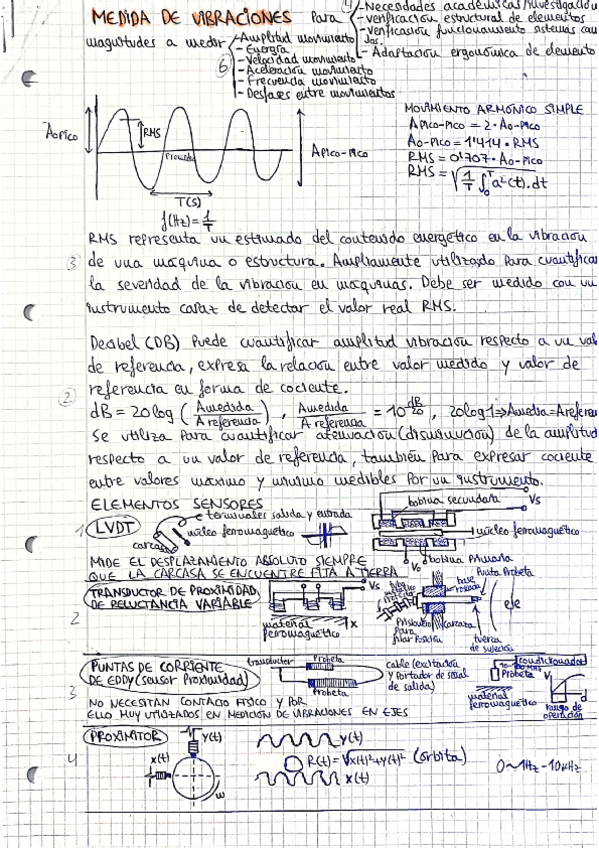 MEDIDA DE VIBRACIONES Para
4
- Necesidades académicas/investigación
- verificación estructural de elementos
- verificación funcionamiento sistemas
- Adaptación ergonómica de elemento
magnitudes a medir
6
- Amplitud movimiento
- Energía
- Velocidad movimiento
- Aceleración movimiento
- Frecuencia movimiento
- Desfases entre movimientos
Ao pico
RMS
Promedio
Apico-pico
T(s)
f(Hz)=1/T
MOVIMIENTO ARMÓNICO SIMPLE
Apico-pico = 2·Ao-pico
Ao-pico = 1'414·RMS
RMS = 0'707·Ao-pico
RMS = √(1/T ∫₀ᵀ a²(t).dt
RMS representa un estimado del contenido energético en la vibración
3
de una máquina o estructura. Ampliamente utilizado para cuantificar
la severidad de la vibración en máquinas. Debe ser medido con un
instrumento capaz de detectar el valor real RMS.
Decibel (DB) Puede cuantificar amplitud vibración respecto a un val
de referencia, expresa la relación entre valor medido y valor de
2
referencia en forma de cociente.
dB = 20log (Amedida/A referencia), Amedida/A referencia = 10^(dB/20), 20log1⇒Amedia=Areferen
se utiliza para cuantificar atenuación (disminución) de la amplitud
respecto a un valor de referencia, también para expresar cociente
entre valores máximo y mínimo medibles por un instrumento.
ELEMENTOS SENSORES
1
LVDT
terminales salida y entrada
núcleo ferromagnético
carcasa
bobina secundaria
Vs
núcleo ferromagnético
Vo
bobina primaria
MIDE EL DESPLAZAMIENTO ABSOLUTO SIEMPRE
QUE LA CARCASA SE ENCUENTRE FIJA A TIERRA
2
TRANSDUCTOR DE PROXIMIDAD
DE RELUCTANCIA VARIABLE
Vo
Vs
material
ferromagnético
x
base
roscada
Punta Probeta
eje
para
fijar posición
carcaza
tuerca
de sujeción
3
PUNTAS DE CORRIENTE
DE EDDY (sensor Proximidad)
transductor
Probeta
Probeta
cable (excitación
y portador de señal
de salida)
condicionador
Probeta
material
ferromagnético
V
d
rango de
operación
NO NECESITAN CONTACO FÍSICO Y POR
ELLO MUY UTILIZADOS EN MEDICIÓN DE VIBRACIONES EN EJES
4
PROXIMITOR
y(t)
x(t)
w
y(t)
R(t)=√x(t)²+y(t)² (órbita)
x(t)
0~1Hz-10kHz